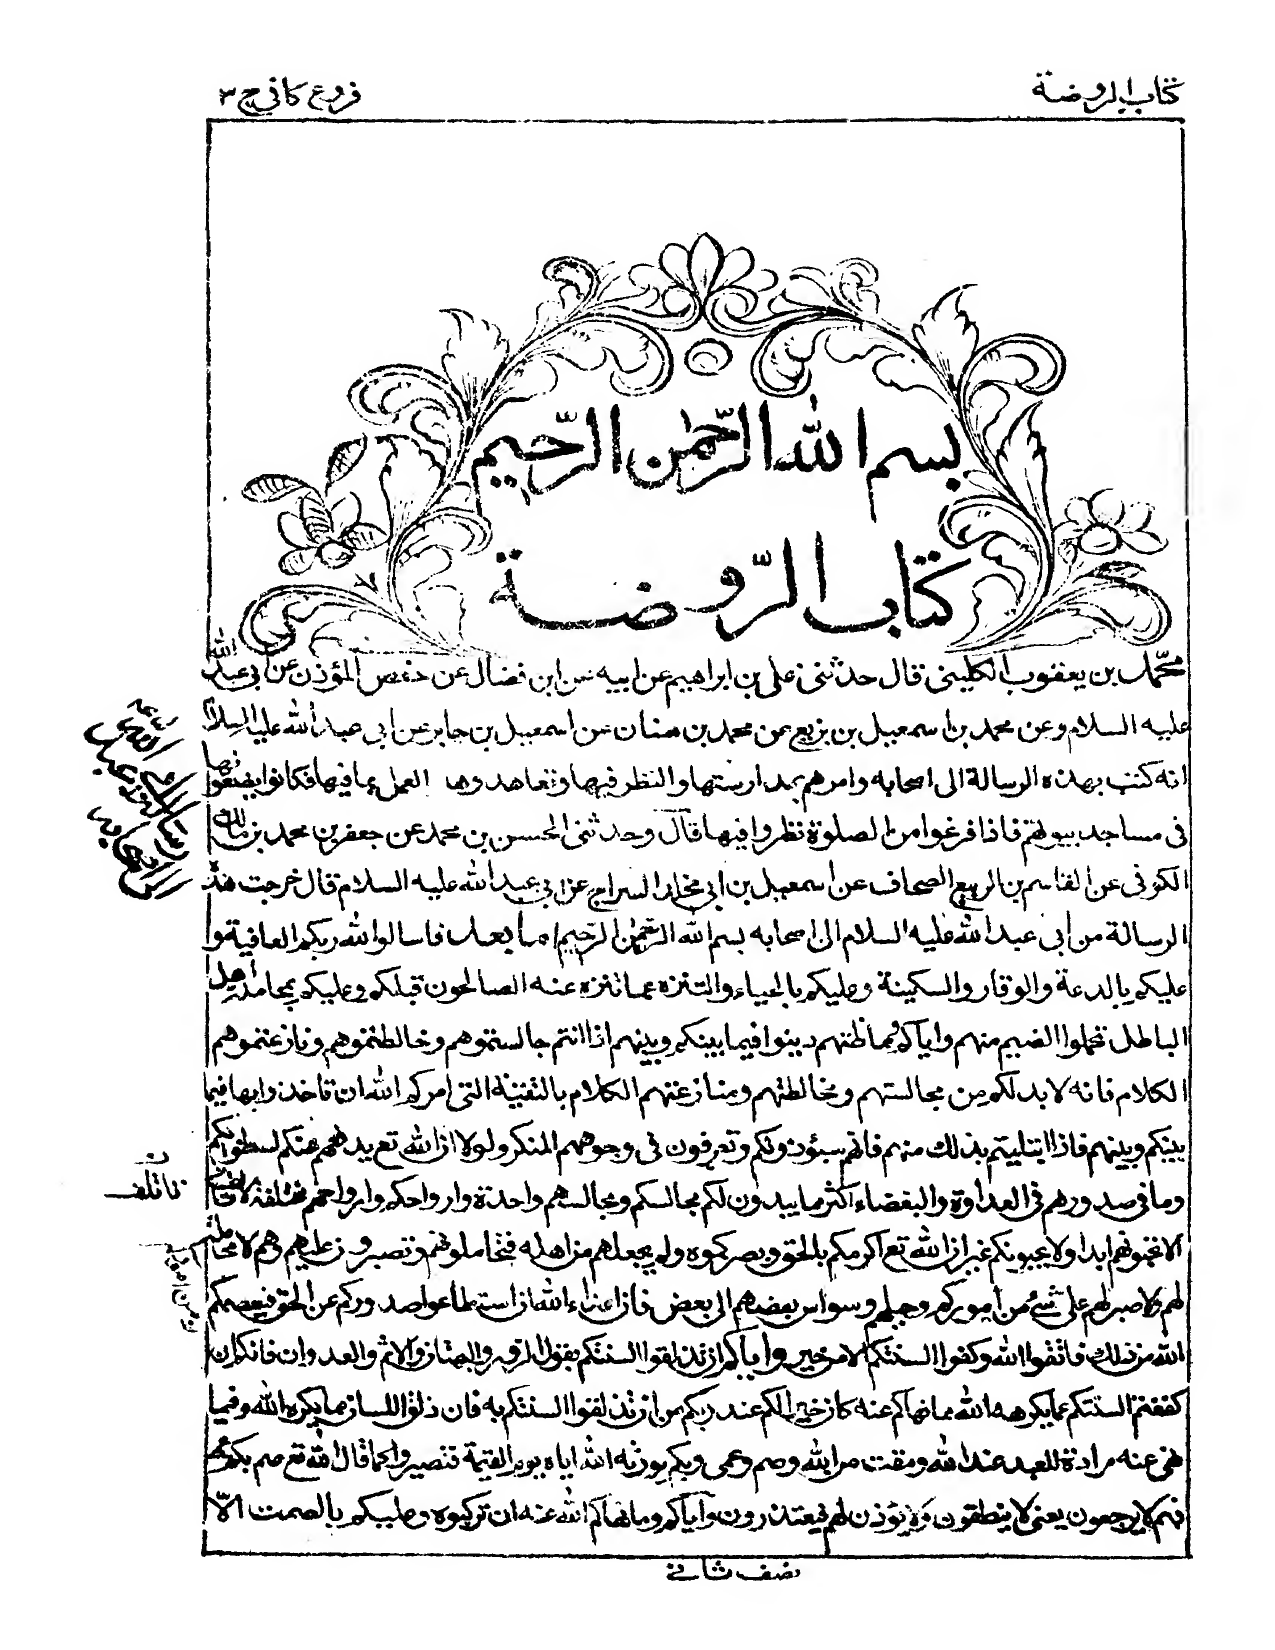 كتاب الروضة
فروع كافي ج ٣
بسم الله الرحمن الرحيم
كتاب الروضة
محمد بن يعقوب الكليني قال حدثني علي بن ابراهيم عن ابيه عن ابن فضال عن حفص المؤذن عن ابي عبد الله
عليه السلام وعن محمد بن اسمعيل بن بزيع عن محمد بن سنان عن اسمعيل بن جابر عن ابي عبد الله عليه السلام
انه كتب بهذه الرسالة الى اصحابه وامرهم بمدارستها والنظر فيها وتعاهدوها العمل بما فيها فكانوا يضعونها
في مساجد بيوتهم فاذا فرغوا من الصلوة نظروا فيها قال وحدثني الحسن بن محمد عن جعفر بن محمد بن مالك
الكوفي عن القاسم بن الربيع الصحاف عن اسمعيل بن ابي مخلد السراج عن ابي عبد الله عليه السلام قال خرجت هذه
الرسالة من ابي عبد الله عليه السلام الى اصحابه بسم الله الرحمن الرحيم اما بعد فاسالوا الله ربكم العافية و
عليكم بالدعة والوقار والسكينة وعليكم بالحياء والتنزه عما تنزه عنه الصالحون قبلكم وعليكم بمجاملة اهل
الباطل تحملوا الضيم منهم واياكم ومماظتهم دينوا فيما بينكم وبينهم اذا انتم جالستموهم وخالطتموهم ونازعتموهم
الكلام فانه لا بد لكم من مجالستهم ومخالطتهم ومنازعتهم الكلام بالتقية التي امركم الله ان تاخذوا بها فيما
بينكم وبينهم فاذا ابتليتم بذلك منهم فانهم سيؤذونكم وتعرفون في وجوههم المنكر ولولا ان الله تع يدفعهم عنكم لسطوا بكم
وما في صدورهم من العداوة والبغضاء اكثر مما يبدون لكم مجالسكم ومجالسهم واحدة وارواحكم وارواحهم مختلفة لا تاتلف
لا تحبونهم ابدا ولا يحبونكم غير ان الله تع اكرمكم بالحق وبصركموه ولم يجعلهم من اهله فتجاملونهم وتصبرون عليهم وهم لا مجاملة
لهم ولا صبر لهم على شئ من اموركم وحيلهم وسواس بعضهم الى بعض فان اعداء الله ان استطاعوا صدوركم عن الحق فيعصمكم
الله من ذلك فاتقوا الله وكفوا السنتكم الا من خير واياكم ان تذلقوا السنتكم بقول الزور والبهتان والاثم والعدوان فانكم ان
كففتم السنتكم عما يكرهه الله مما نهاكم عنه كان خيرا لكم عند ربكم من ان تذلقوا السنتكم به فان ذلق اللسان فيما يكره الله وفيما
نهى عنه مرداة للعبد عند الله ومقت من الله وصم وعمى وبكم يورثه الله اياه يوم القيمة فتصيروا كما قال الله تع صم بكم عمي
فهم لا يرجعون يعني لا ينطقون ولا يؤذن لهم فيعتذرون واياكم وما نهاكم الله عنه ان تركبوه وعليكم بالصمت الا
نصف ثاني
رسالة ابي عبد الله
الى اصحابه
ن
تاتلف